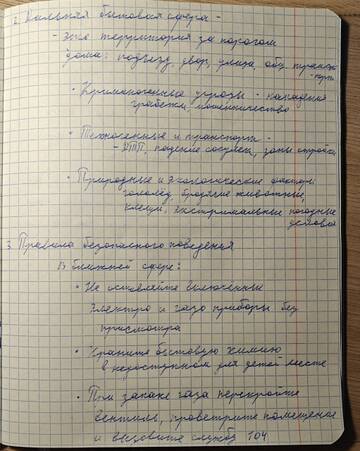 2. Дальняя бытовая сфера -
- Это территория за порогом
дома: подъезд, двор, улица, общ. транспорт
• Криминогенные угрозы - нападения
грабежи, мошенничество
• Техногенные и транспорт -
- ДТП, падение сосулек, зоны стройки
• Природные и Экологические факторы
гололёд, бродячие животные,
клещи, экстримальные погодные
условия
3. Правила безопасного поведения
В ближней сфере:
• Не оставляйте включенные
электро и газо приборы без
присмотра
• Храните бытовую химию
в недоступном для детей месте
• При запахе газа перекройте
вентиль, проветрите помещение
и вызовите службу 104